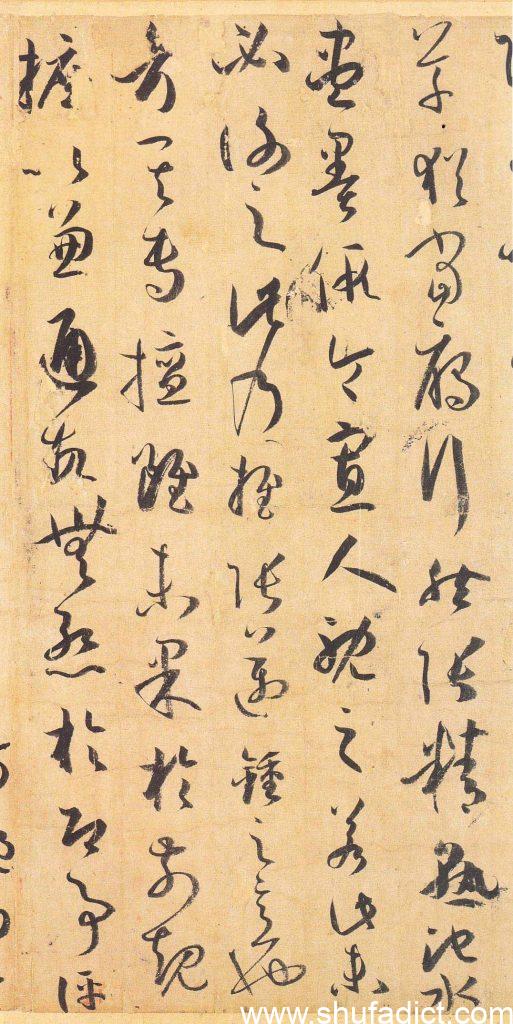 草猶當鴈行然張精熟池水
盡墨假令寡人耽之若此未
必謝之此乃推張邁鍾之意也
考其專擅雖未果於前規
摭以兼通故無慙於即事評
www.shufadict.com